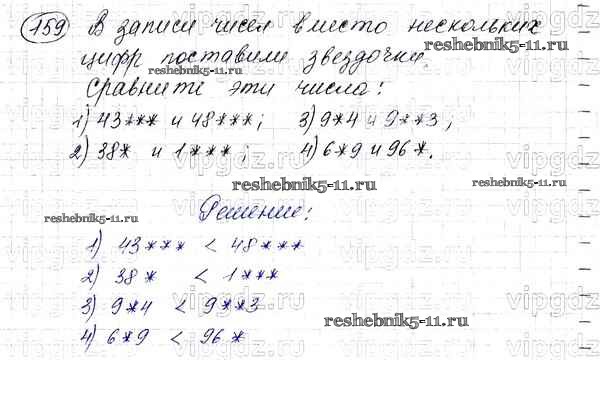 159 В записи чисел вместо нескольких
цифр поставили звездочки.
Сравните эти числа:
1) 43*** и 48***; 3) 9*4 и 9**3;
2) 38* и 1***; 4) 6*9 и 96*.
Решение:
1) 43*** < 48***
2) 38* < 1***
3) 9*4 < 9**3
4) 6*9 < 96*
reshebnik5-11.ru
reshebnik5-11.ru
reshebnik5-11.ru
reshebnik5-11.ru
reshebnik5-11.ru
reshebnik5-11.ru
vipgdz.ru
vipgdz.ru
vipgdz.ru
vipgdz.ru